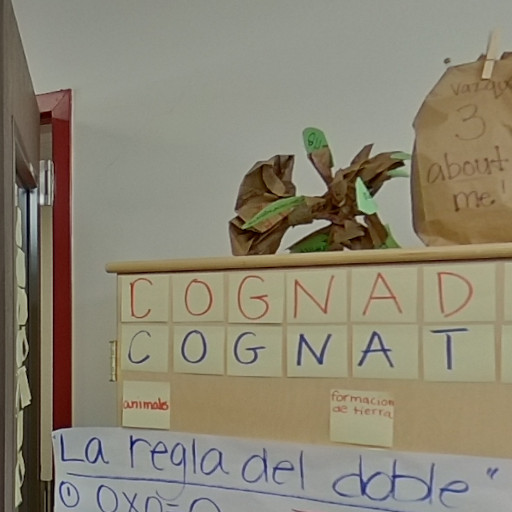 3
about
me!
COGNAD
COGNAT
animales
formacion
de tierra
La regla del doble"
① 0xn=0